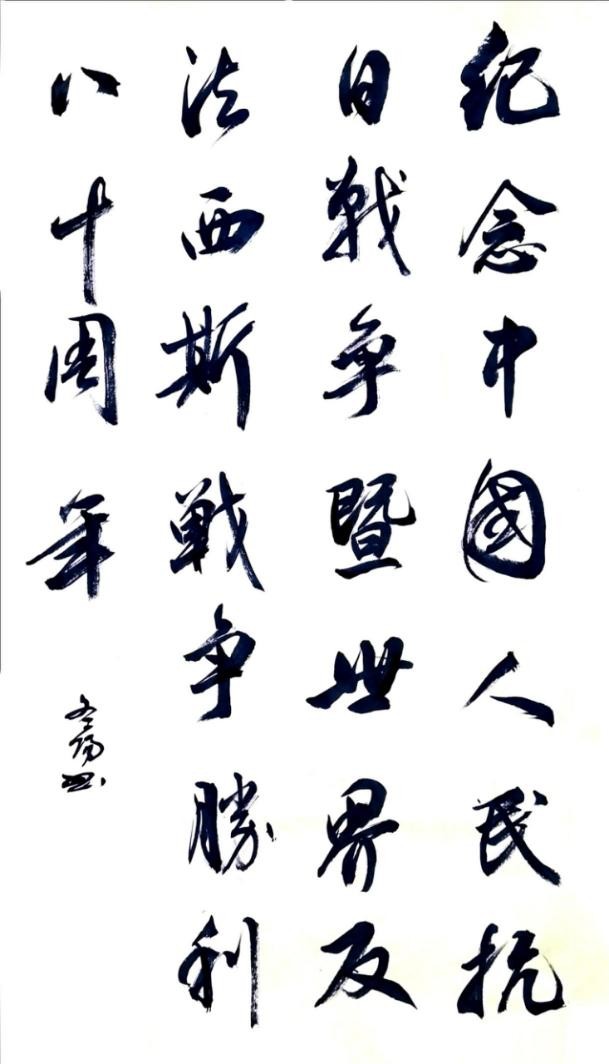 纪念中國人民抗
日戰争暨世界反
法西斯戰争勝利
八十周年